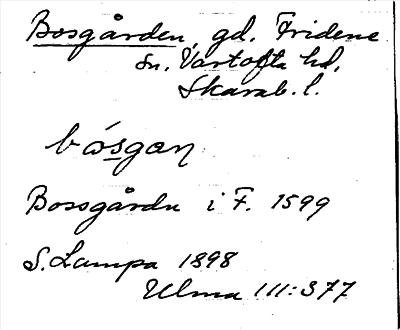 Bosgården, gd. Fridene
sn, Vartofta hd,
Skarab. l.
bósgan
Bossgårdn i F. 1599
S. Lampa 1898
Ulma 111:377